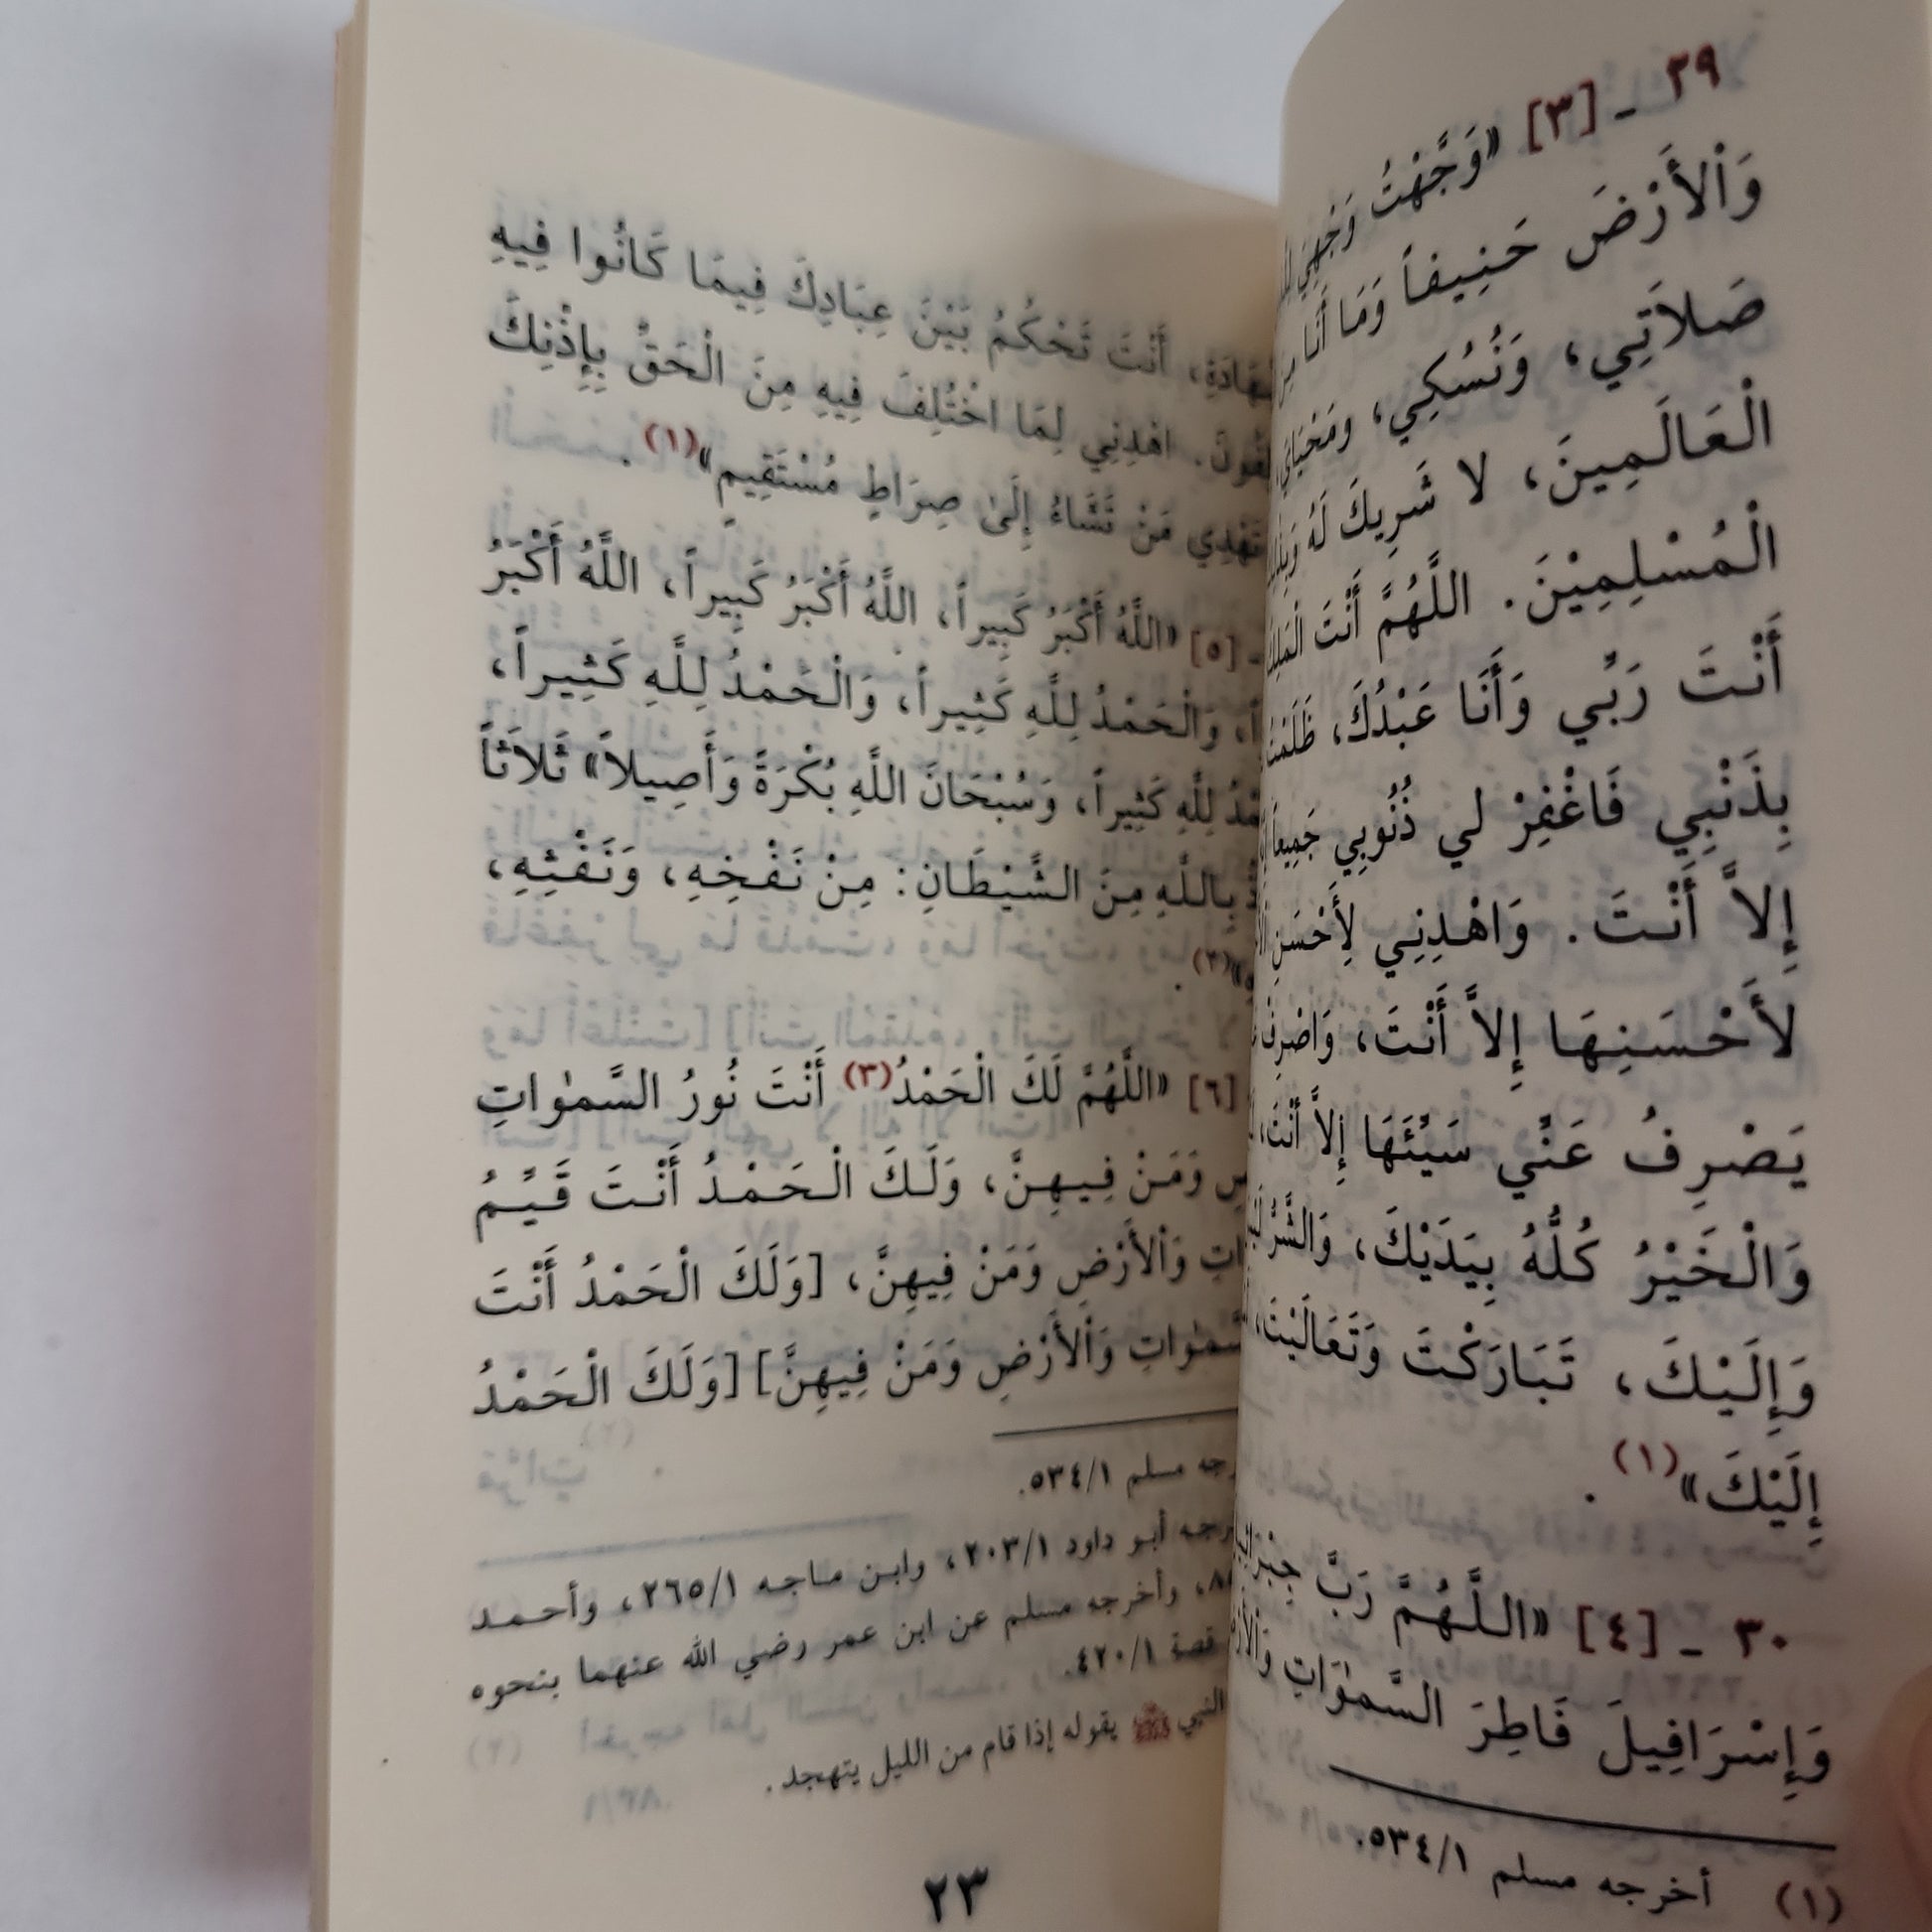 ٢٩ ـ [٣] «وَجَّهْتُ وَجْهِيَ
وَالْأَرْضَ حَنِيفاً وَمَا أَنَا
صَلَاتِي، وَنُسُكِي، وَمَحْيَايَ،
الْعَالَمِينَ، لا شَرِيكَ لَهُ
الْمُسْلِمِيْنَ. اللَّهُمَّ أَنْتَ الْمَلِكُ
أَنْتَ رَبِّي وَأَنَا عَبْدُكَ، ظَلَمْتُ
بِذَنْبِي فَاغْفِرْ لي ذُنُوبِي جَمِيعاً
إِلاَّ أَنْتَ. وَاهْدِنِي لِأَحْسَنِ
لأَحْسَنِهَا إِلاَّ أَنْتَ، وَاصْرِفْ
يَصْرِفُ عَنِّي سَيِّئَهَا إِلاَّ أَنْتَ،
وَالْخَيْرُ كُلُّهُ بِيَدَيْكَ، وَالشَّرُّ
وَإِلَيْكَ، تَبَارَكْتَ وَتَعَالَيْتَ،
إِلَيْكَ»(١).
٣٠ ـ [٤] «اللَّهُمَّ رَبَّ
وَإِسْرَافِيلَ فَاطِرَ السَّمٰوَاتِ
(١) أخرجه مسلم ٥٣٤/١.
أَنْتَ تَحْكُمُ بَيْنَ عِبَادِكَ فِيمَا كَانُوا فِيهِ
اهْدِنِي لِمَا اخْتُلِفَ فِيهِ مِنَ الْحَقِّ بِإِذْنِكَ
تَهْدِي مَنْ تَشَاءُ إِلَىٰ صِرَاطٍ مُسْتَقِيمٍ»(١).
[٥] «اللَّهُ أَكْبَرُ كَبِيراً، اللَّهُ أَكْبَرُ كَبِيراً، اللَّهُ أَكْبَرُ
وَالْحَمْدُ لِلَّهِ كَثِيراً، وَالْحَمْدُ لِلَّهِ كَثِيراً،
لِلَّهِ كَثِيراً، وَسُبْحَانَ اللَّهِ بُكْرَةً وَأَصِيلاً» ثَلاَثاً
بِاللَّهِ مِنَ الشَّيْطَانِ: مِنْ نَفْخِهِ، وَنَفْثِهِ،
»(٢).
[٦] «اللَّهُمَّ لَكَ الْحَمْدُ(٣) أَنْتَ نُورُ السَّمٰوَاتِ
وَمَنْ فِيهِنَّ، وَلَكَ الْحَمْدُ أَنْتَ قَيِّمُ
وَالْأَرْضِ وَمَنْ فِيهِنَّ، [وَلَكَ الْحَمْدُ أَنْتَ
وَالْأَرْضِ وَمَنْ فِيهِنَّ] [وَلَكَ الْحَمْدُ
مسلم ٥٣٤/١.
أبو داود ٢٠٣/١، وابن ماجه ٢٦٥/١، وأحمد
وأخرجه مسلم عن ابن عمر رضي الله عنهما بنحوه
قصة ٤٢٠/١.
النبي ﷺ يقوله إذا قام من الليل يتهجد.
٢٣